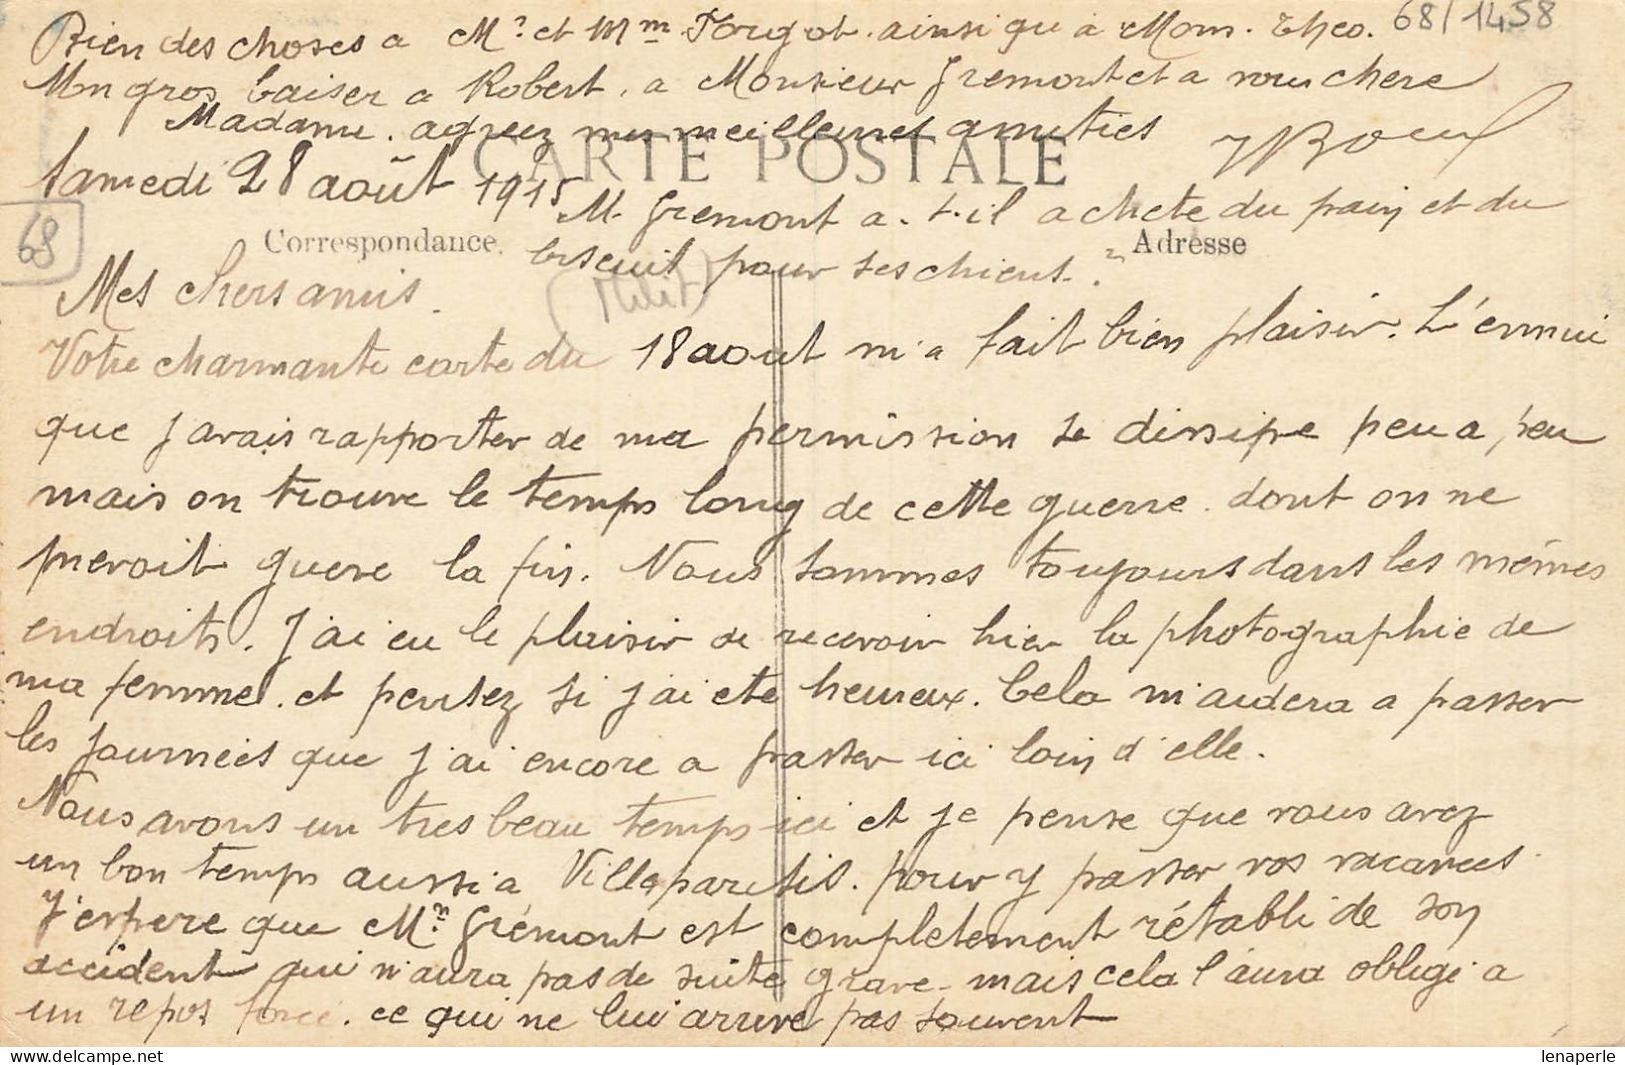 Bien des choses a Mr et Mme Forget. ainsi qu'a Mom. Theo. 68/1458
Mon gros baiser a Robert. a Monsieur Gremont et a vous chere
Madame. agreez mes meilleures amities
CARTE POSTALE
Samedi 28 août 1915
M. Gremont a.t.il achete du pain et du
Correspondance. Adresse
biscuit pour ses chiens. ?
68
(Milit)
Mes chers amis.
Votre charmante carte du 18 aout m'a fait bien plaisir. L'ennui
que j'avais rapporter de ma permission se dissipe peu a peu
mais on trouve le temps long de cette guerre. dont on ne
prevoit guere la fin. Nous sommes toujours dans les mêmes
endroits. J'ai eu le plaisir de recevoir hier la photographie de
ma femme. et pensez si j'ai ete heureux. Cela m'aidera a passer
les journees que j'ai encore a passer ici loin d'elle.
Nous avons un tres beau temps ici et je pense que vous avez
un bon temps aussi a Villeparisis. pour y passer vos vacances.
J'espere que Mr Grémont est completement rétabli de son
accident qui n'aura pas de suite grave. mais cela l'aura obligé a
un repos forcé. ce qui ne lui arrive pas souvent
lenaperle